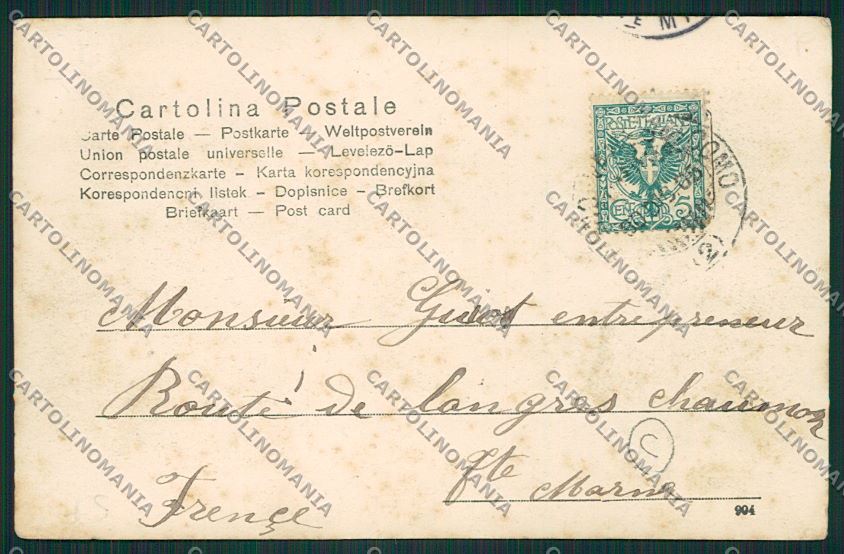 Cartolina Postale
Carte Postale — Postkarte — Weltpostverein
Union postale universelle — Levelezö-Lap
Correspondenzkarte – Karta korespondencyjna
Korespondencni listek – Dopisnice – Brefkort
Briefkaart — Post card
POSTE ITALIANE
CENT 5
COMO
Monsieur Guiot entrepreneur
Route de langres chaumon
Hte Marne
Françe
C
904
CARTOLINOMANIA